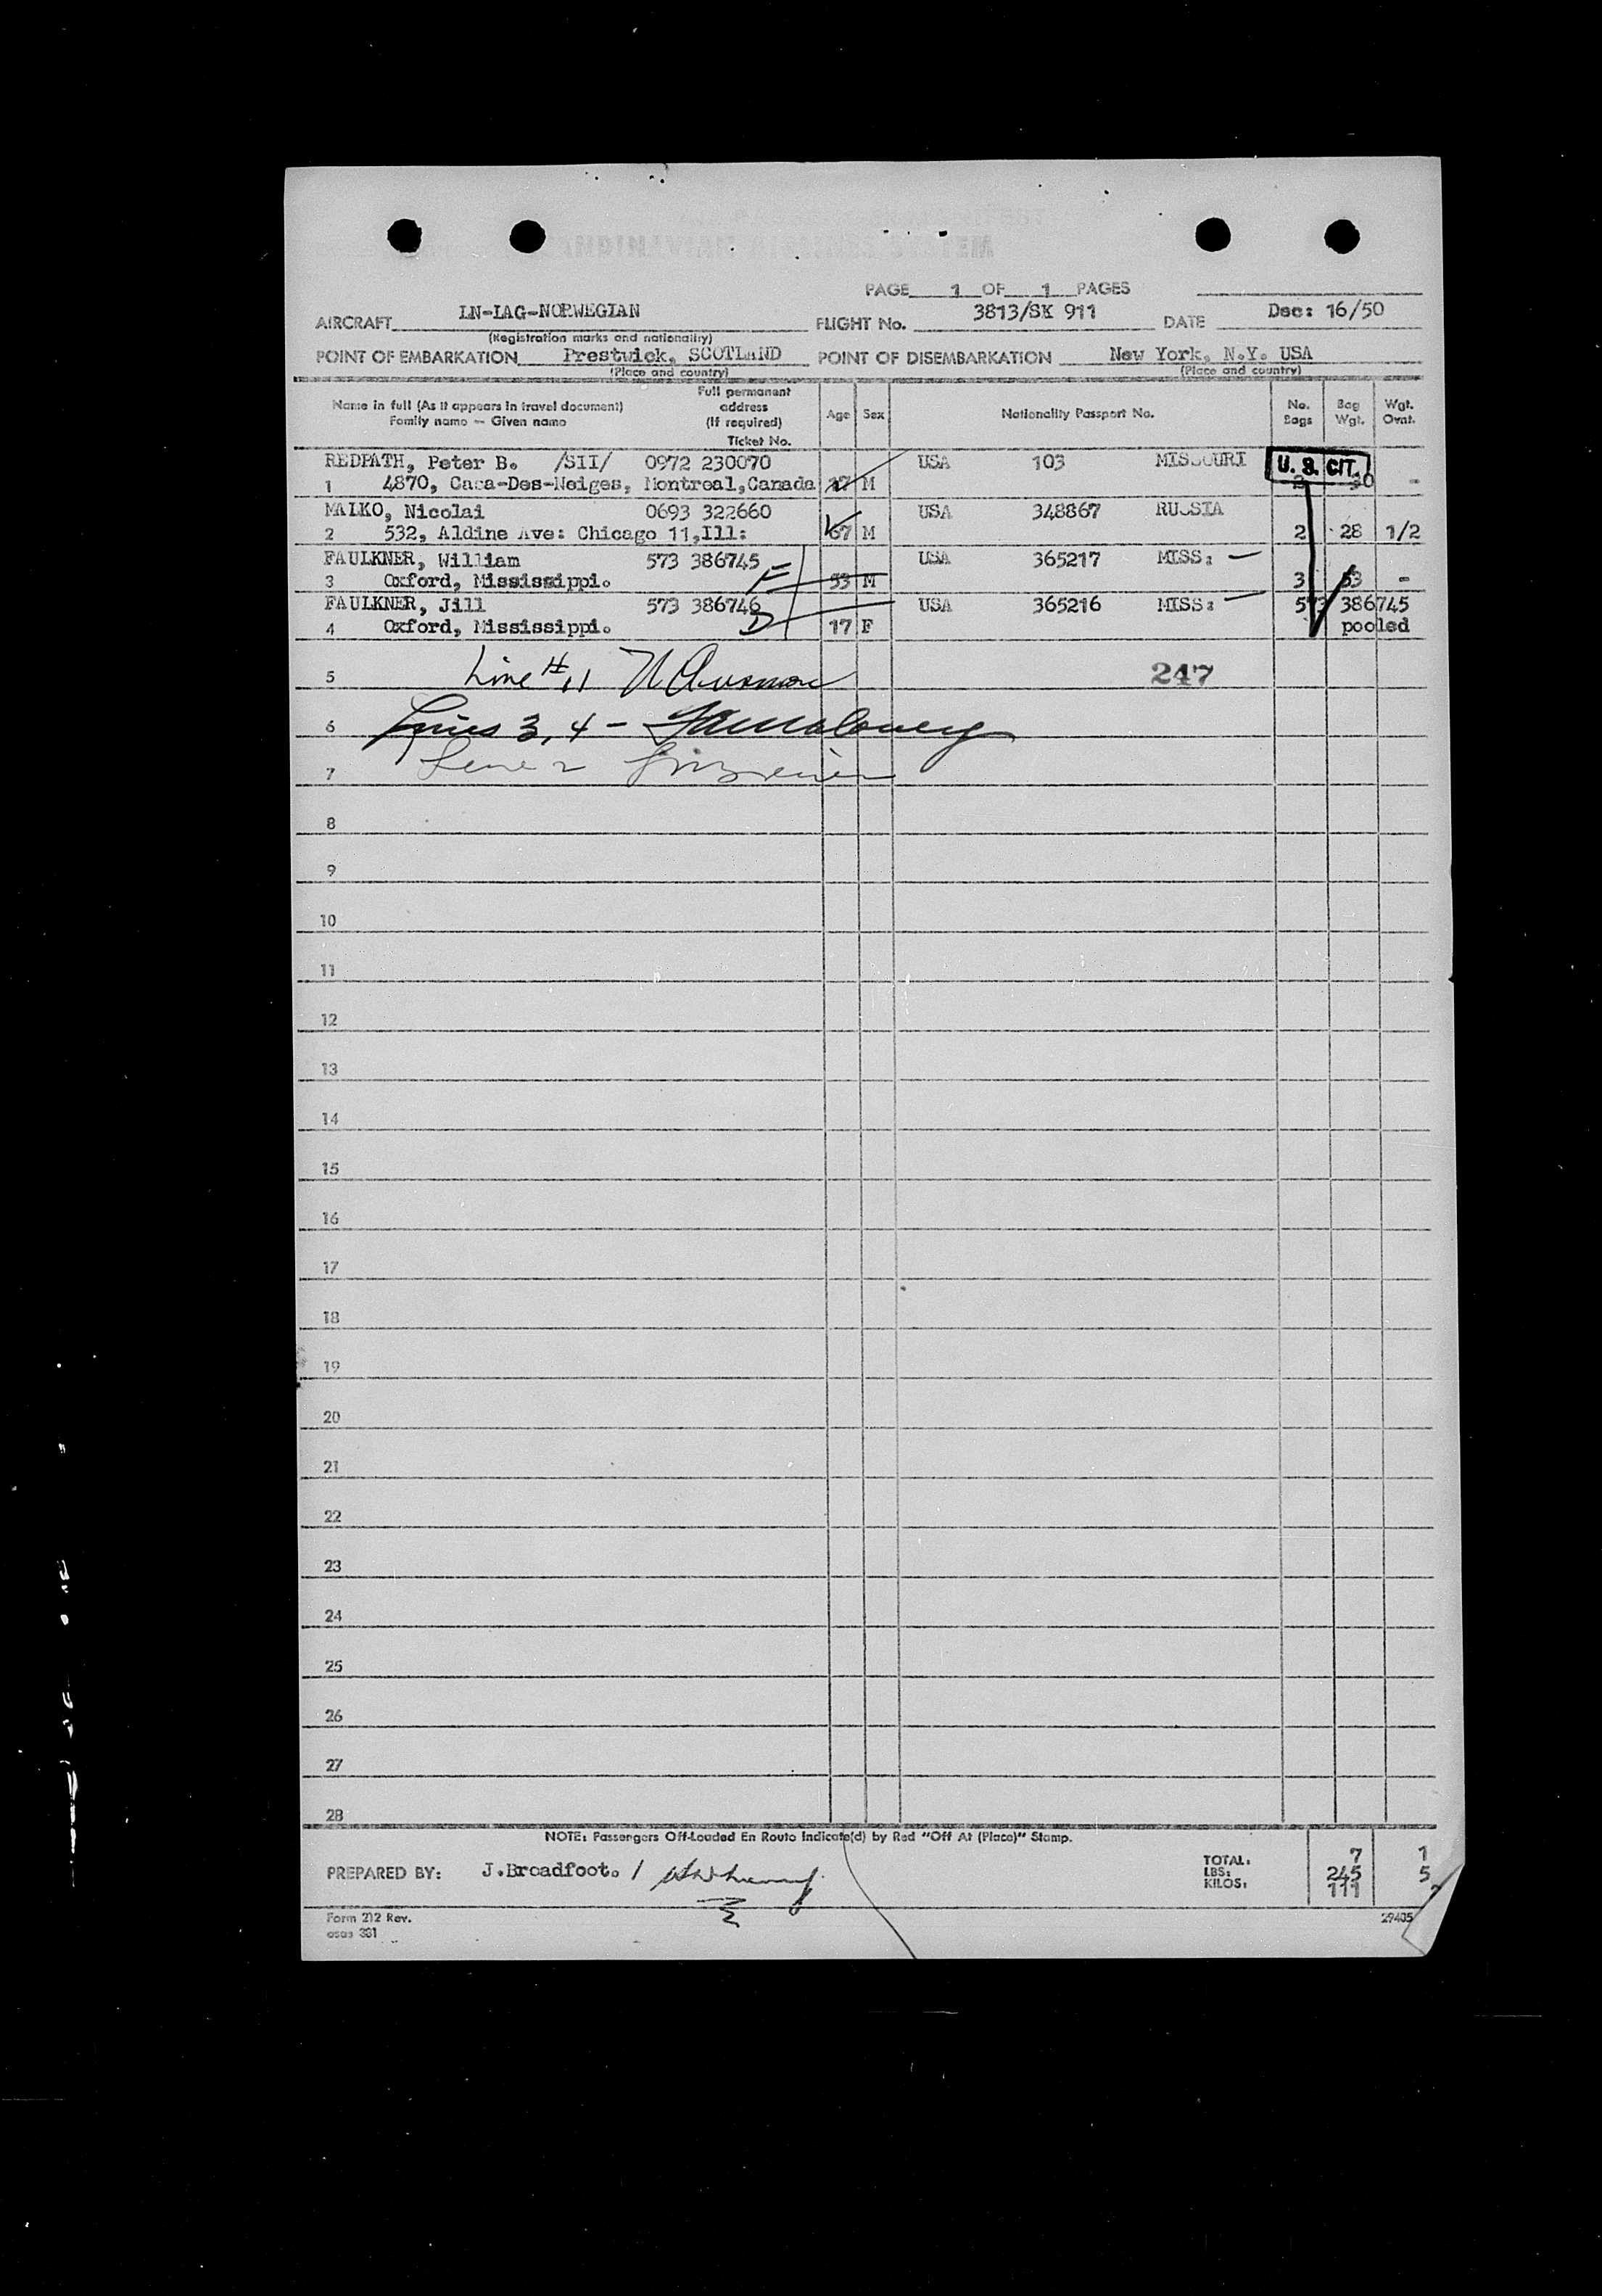 SCANDINAVIAN AIRLINES SYSTEM
PAGE 1 OF 1 PAGES
AIRCRAFT LN-LAG-NORWEGIAN FLIGHT No. 3813/SK 911 DATE Dec: 16/50
(Registration marks and nationality)
POINT OF EMBARKATION Prestwick, SCOTLAND POINT OF DISEMBARKATION New York, N.Y. USA
(Place and country) (Place and country)
Name in full (As it appears in travel document) Family name — Given name Full permanent address (If required) Ticket No. Age Sex Nationality Passport No. No. Bags Bag Wgt. Wgt. Ovnt.
REDPATH, Peter B. /SII/ 0972 230070 USA 103 MISSOURI U. S. CIT.
1 4870, Caca-Des-Neiges, Montreal,Canada M -
MALKO, Nicolai 0693 322660 USA 348867 RUSSIA
2 532, Aldine Ave: Chicago 11,Ill: 67 M 2 28 1/2
FAULKNER, William 573 386745 F USA 365217 MISS: —
3 Oxford, Mississippi. 53 M 3 53 -
FAULKNER, Jill 573 386746 D USA 365216 MISS: — 573 386745
4 Oxford, Mississippi. 17 F pooled
5 Line # 11 247
6 Lines 3, 4 –
7 Line 2
8
9
10
11
12
13
14
15
16
17
18
19
20
21
22
23
24
25
26
27
28
NOTE: Passengers Off-Loaded En Route Indicate(d) by Red "Off At (Place)" Stamp.
PREPARED BY: J.Broadfoot. /
TOTAL: 7 1
LBS: 245 5
KILOS: 111
Form 212 Rev. 29405
osas 381